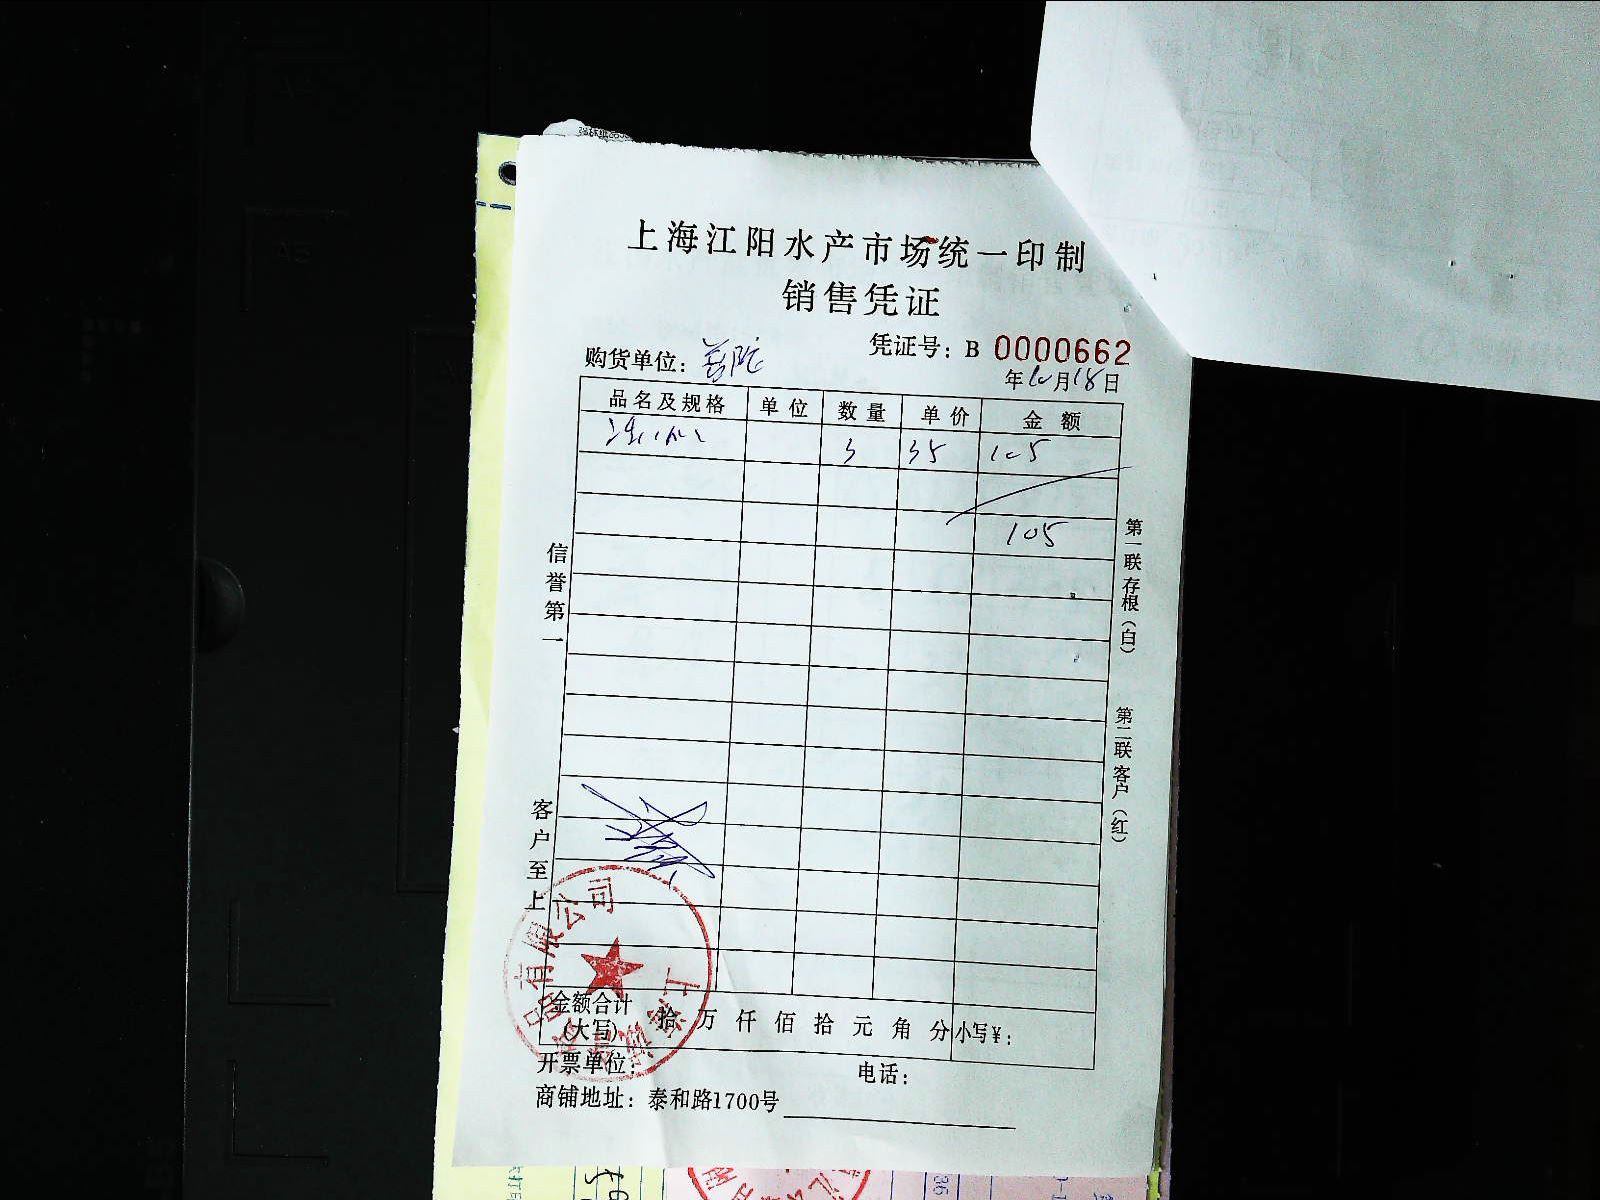 上海江阳水产市场统一印制
销售凭证
购货单位：
凭证号：B 0000662
年10月18日
品名及规格 单位 数量 单价 金额
3 35 105
105
信誉第一
客户至上
第一联存根（白）
第二联客户（红）
金额合计（大写） 拾万仟佰拾元角分 小写¥：
开票单位：
电话：
商铺地址：泰和路1700号
品有限公司
上海